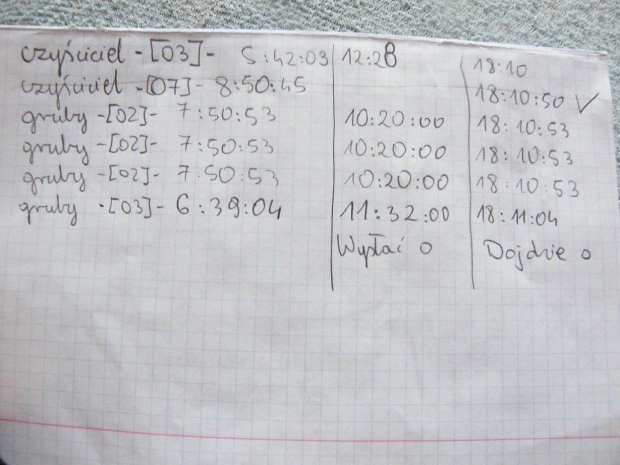 czyściciel - [03] - 5:42:03 12:28 18:10
czyściciel - [07] - 8:50:45 18:10:50 ✓
gruby - [02] - 7:50:53 10:20:00 18:10:53
gruby - [02] - 7:50:53 10:20:00 18:10:53
gruby - [02] - 7:50:53 10:20:00 18:10:53
gruby - [03] - 6:39:04 11:32:00 18:11:04
Wysłać o Dojdzie o